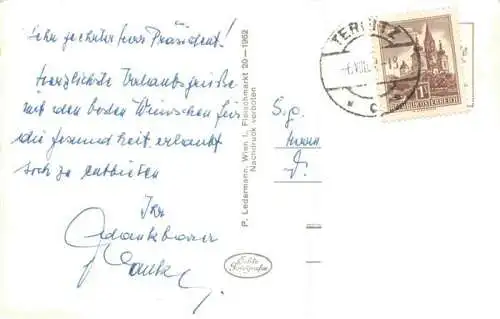 Sehr geehrter Herr Präsident!
Herzlichste Urlaubsgrüße
mit den besten Wünschen für
die Gesundheit erlaubt
sich zu entbieten
Ihr
dankbarer
P. Ledermann, Wien I., Fleischmarkt 20 — 1962
Nachdruck verboten
Echte
Fotografie
S.g.
Herrn
TERNITZ
C
1S
REPUBLIK ÖSTERREICH